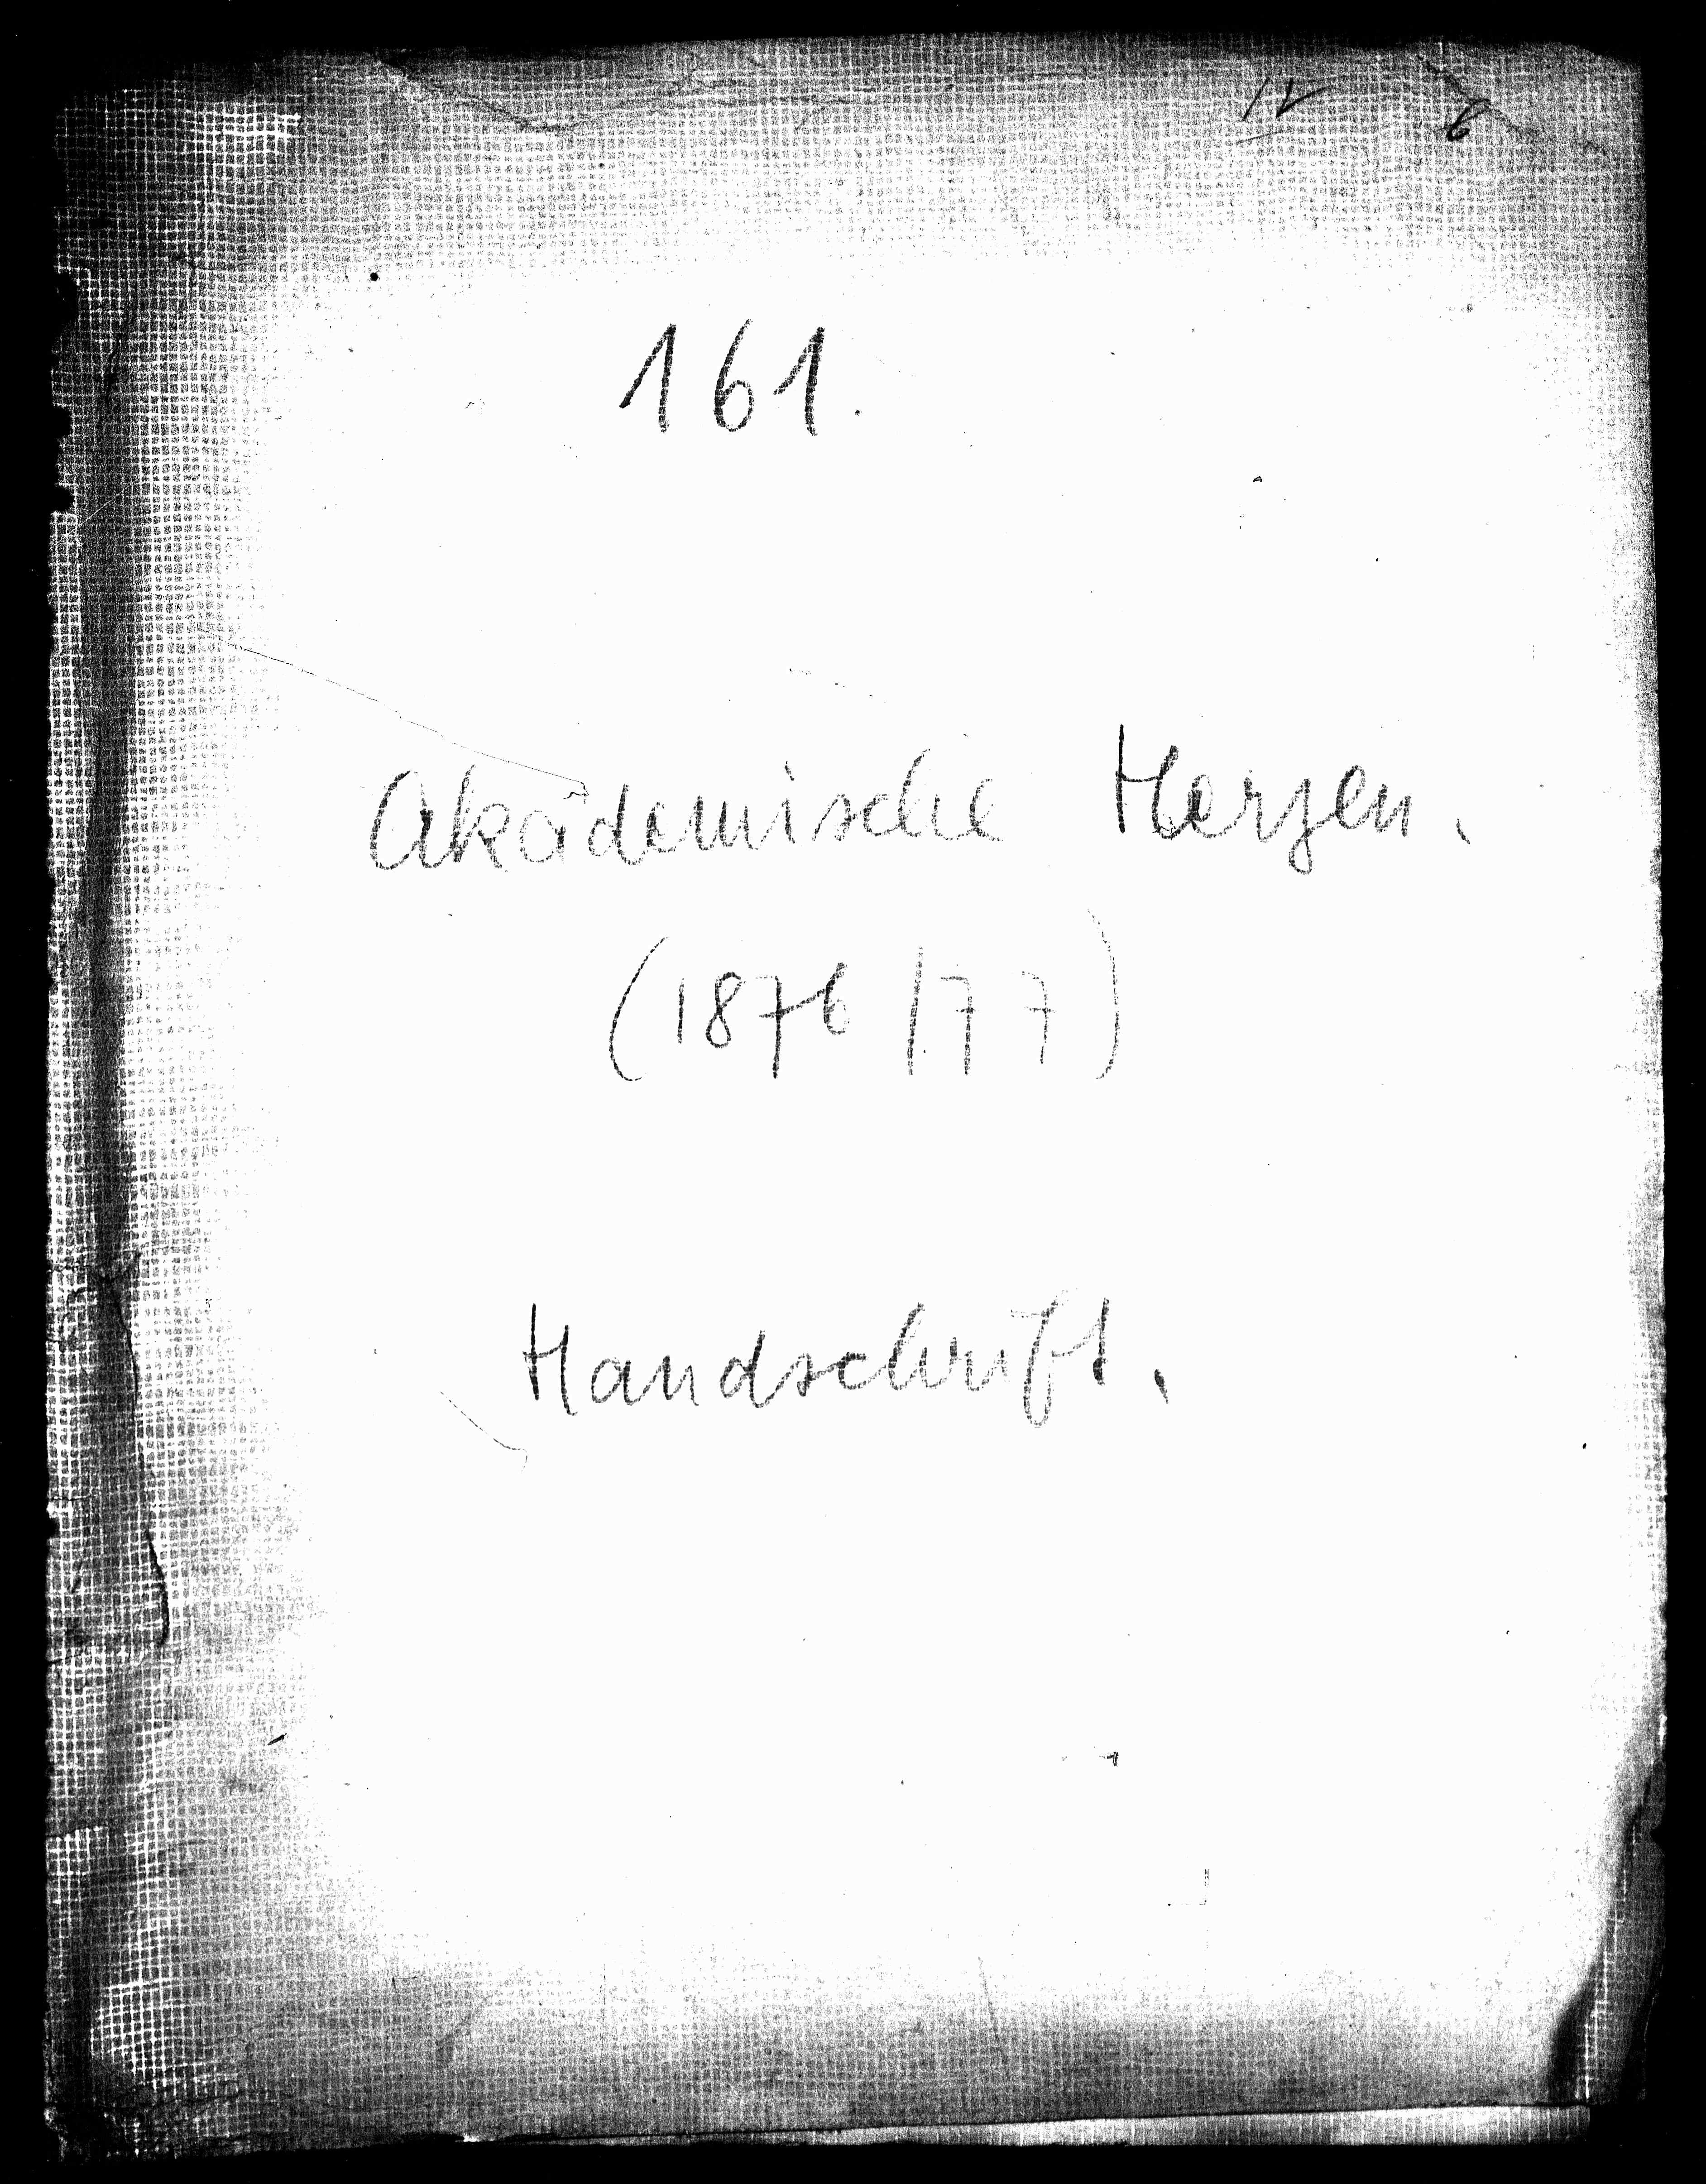 12 6
161.
Akademische Herzen.
(1876/77)
Handschrift.